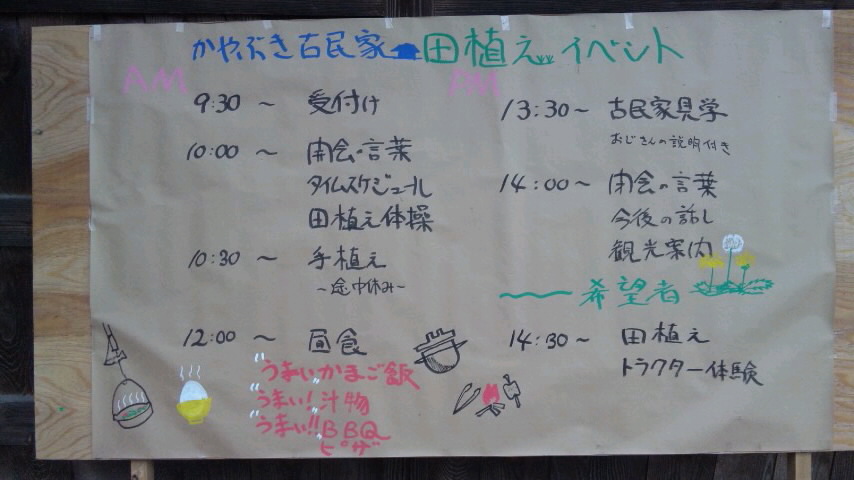 かやぶき古民家 田植え イベント
AM
9:30 〜 受付け
10:00 〜 開会の言葉
タイムスケジュール
田植え体操
10:30 〜 手植え
〜途中休み〜
12:00 〜 昼食
"うまい"かまご飯
"うまい!"汁物
"うまい!!"BBQ
ピザ
PM
13:30〜 古民家見学
おじさんの説明付き
14:00〜 閉会の言葉
今後の話し
観光案内
〜〜希望者
14:30〜 田植え
トラクター体験